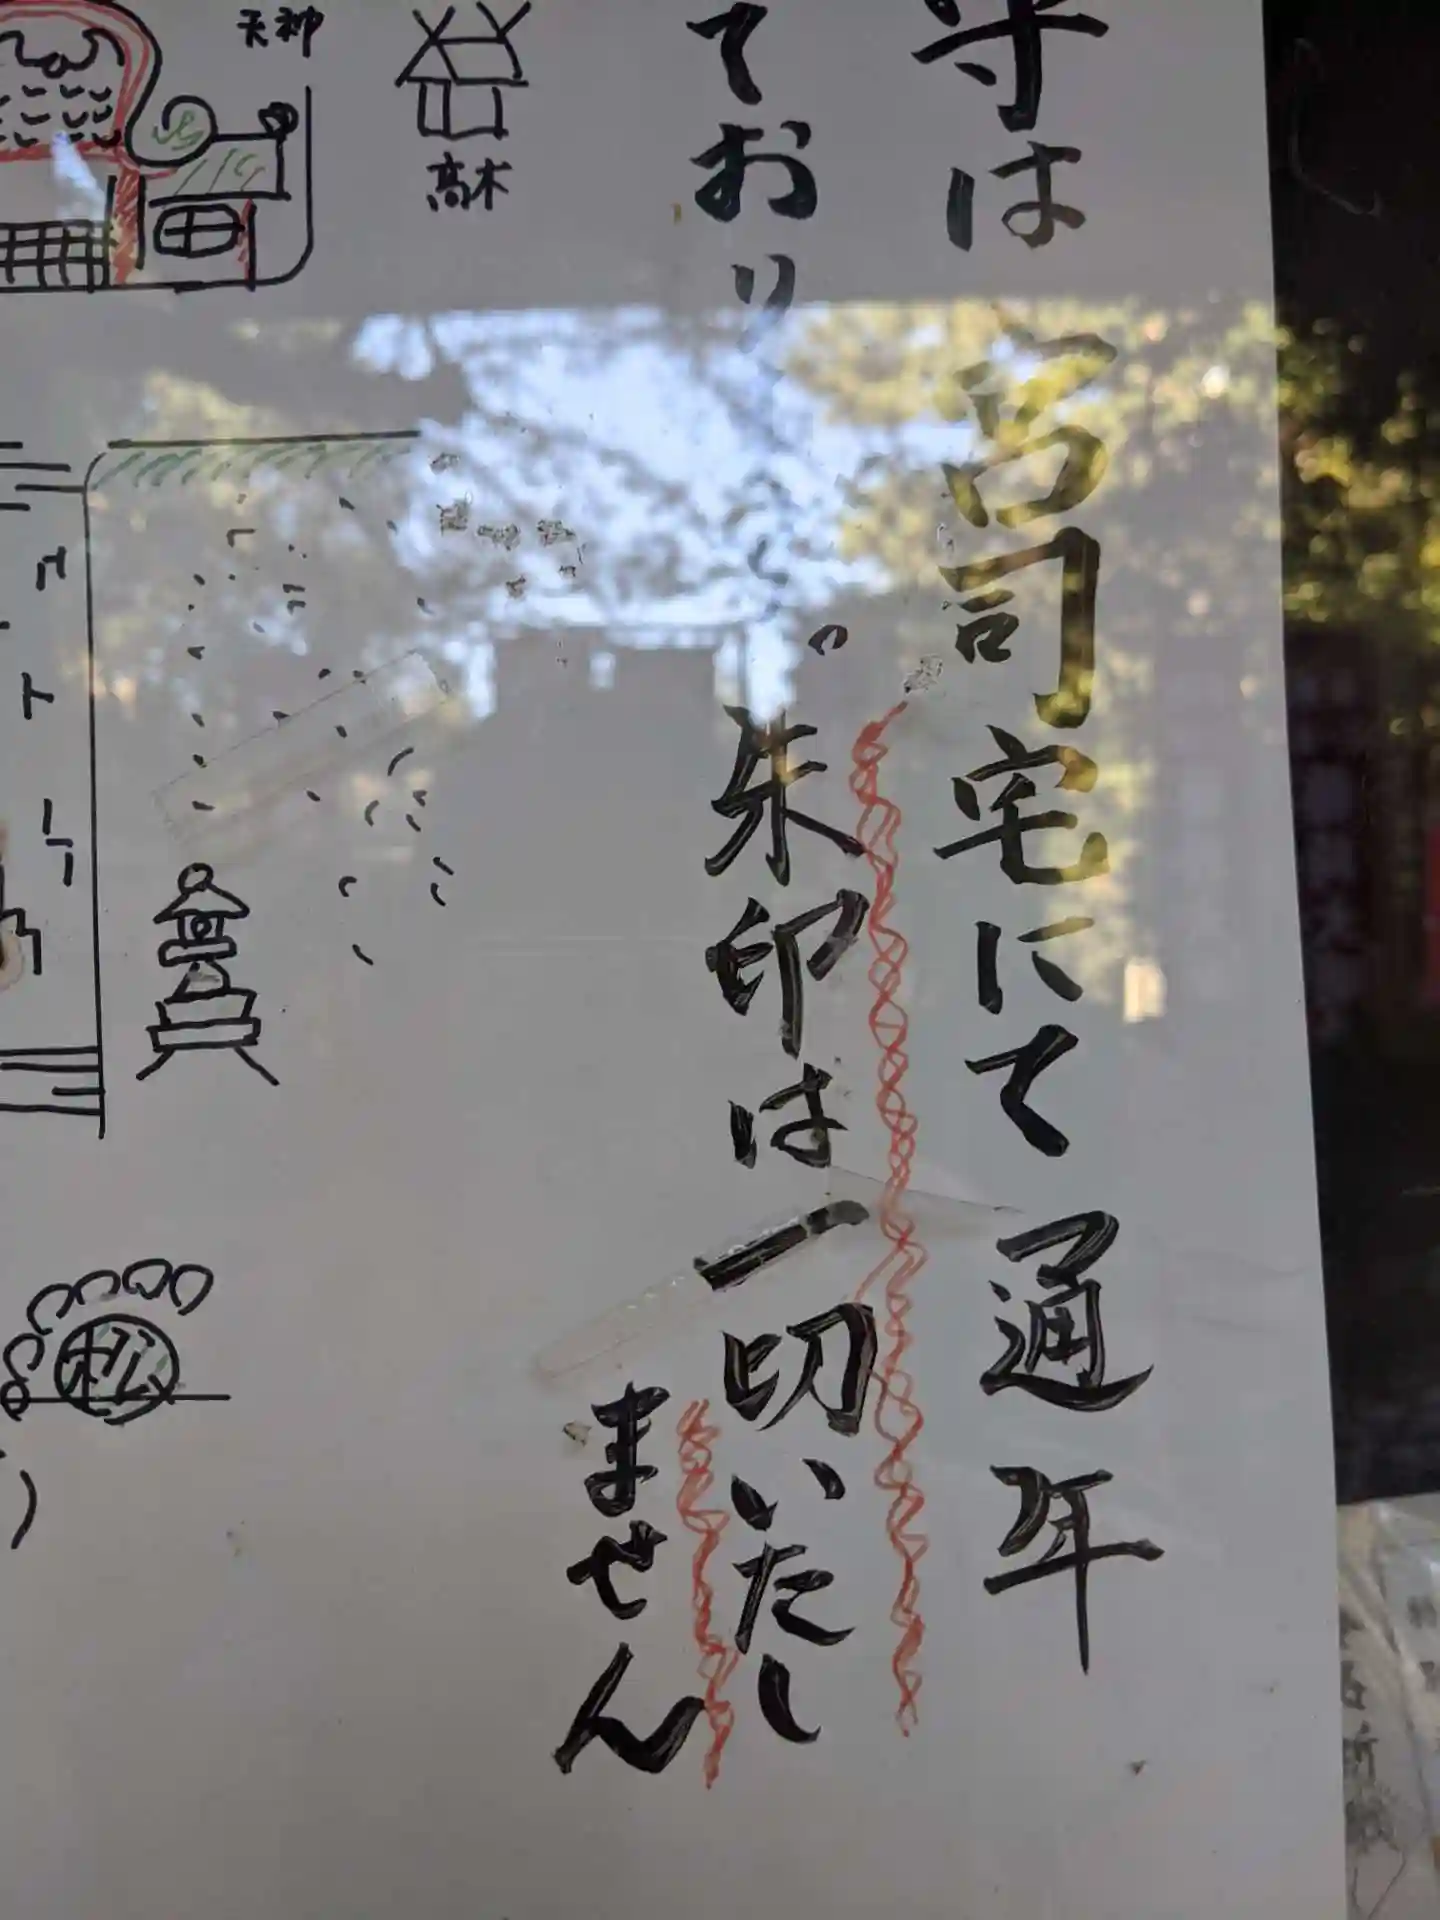 守は宮司宅にて通年
ております。朱印は一切いたし
ません
天神
高木
松